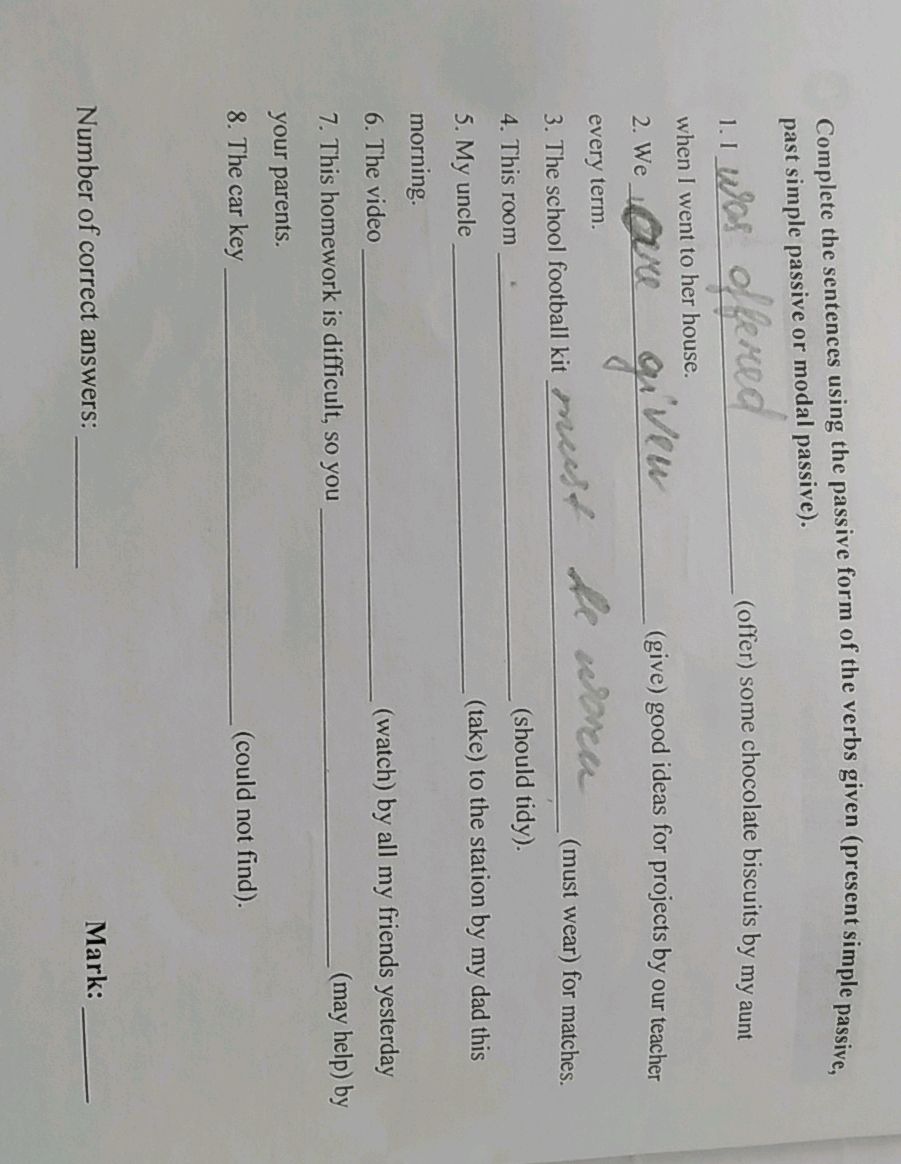 Complete the sentences using the passive form of the verbs given (present simple passive,
past simple passive or modal passive).
1. I was offered (offer) some chocolate biscuits by my aunt
when I went to her house.
2. We are given (give) good ideas for projects by our teacher
every term.
3. The school football kit must be worn (must wear) for matches.
4. This room ____ (should tidy).
5. My uncle ____ (take) to the station by my dad this
morning.
6. The video ____ (watch) by all my friends yesterday
7. This homework is difficult, so you ____ (may help) by
your parents.
8. The car key ____ (could not find).
Number of correct answers: ____ Mark: ____